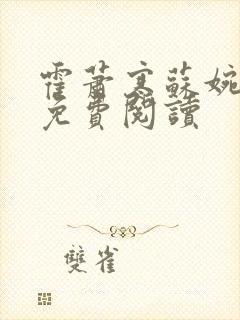 霍蕭寒蘇婉
免費閱讀
雙雀